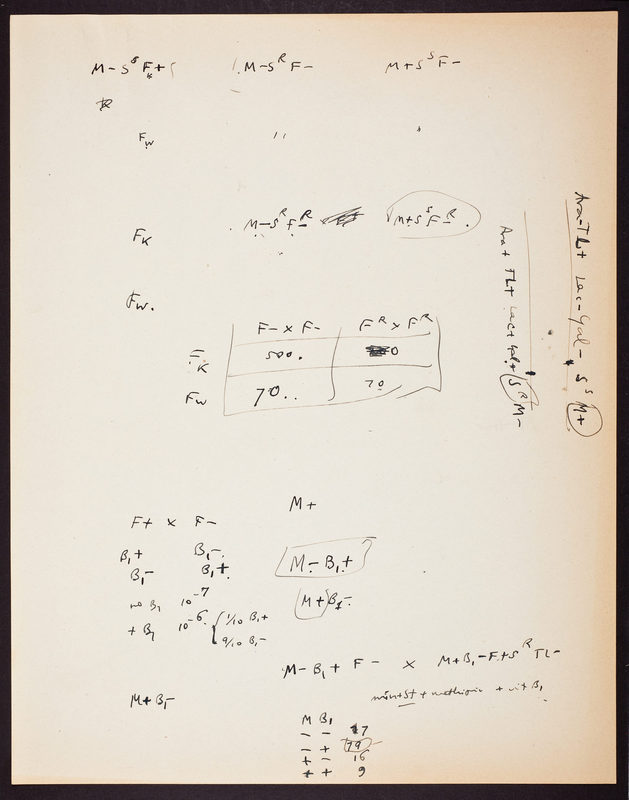 M – S^S F +     M – S^R F –     M + S^S F –
F_W     "     "
F_K     M – S^R F^R –     M + S^S F^R – .
F_W.
F– x F–     F^R x F^R
F_K     500.     0
F_W     70..     70
Ara+ TL+ Lac+ Gal+ S^R M–
Ara– TL+ Lac– Gal– S^S M+
M +
F+ x F–
B₁+     B₁–.     M – B₁+
B₁–     B₁+.
no B₁     10^-7     M + B₁–
+ B₁     10^-6     { 1/10 B₁+
9/10 B₁–
M – B₁ + F –     x     M + B₁ – F + S^R TL–
min + St + methionin + vit B₁
M + B₁–
M     B₁
–     –     17
–     +     79
+     –     16
+     +     9